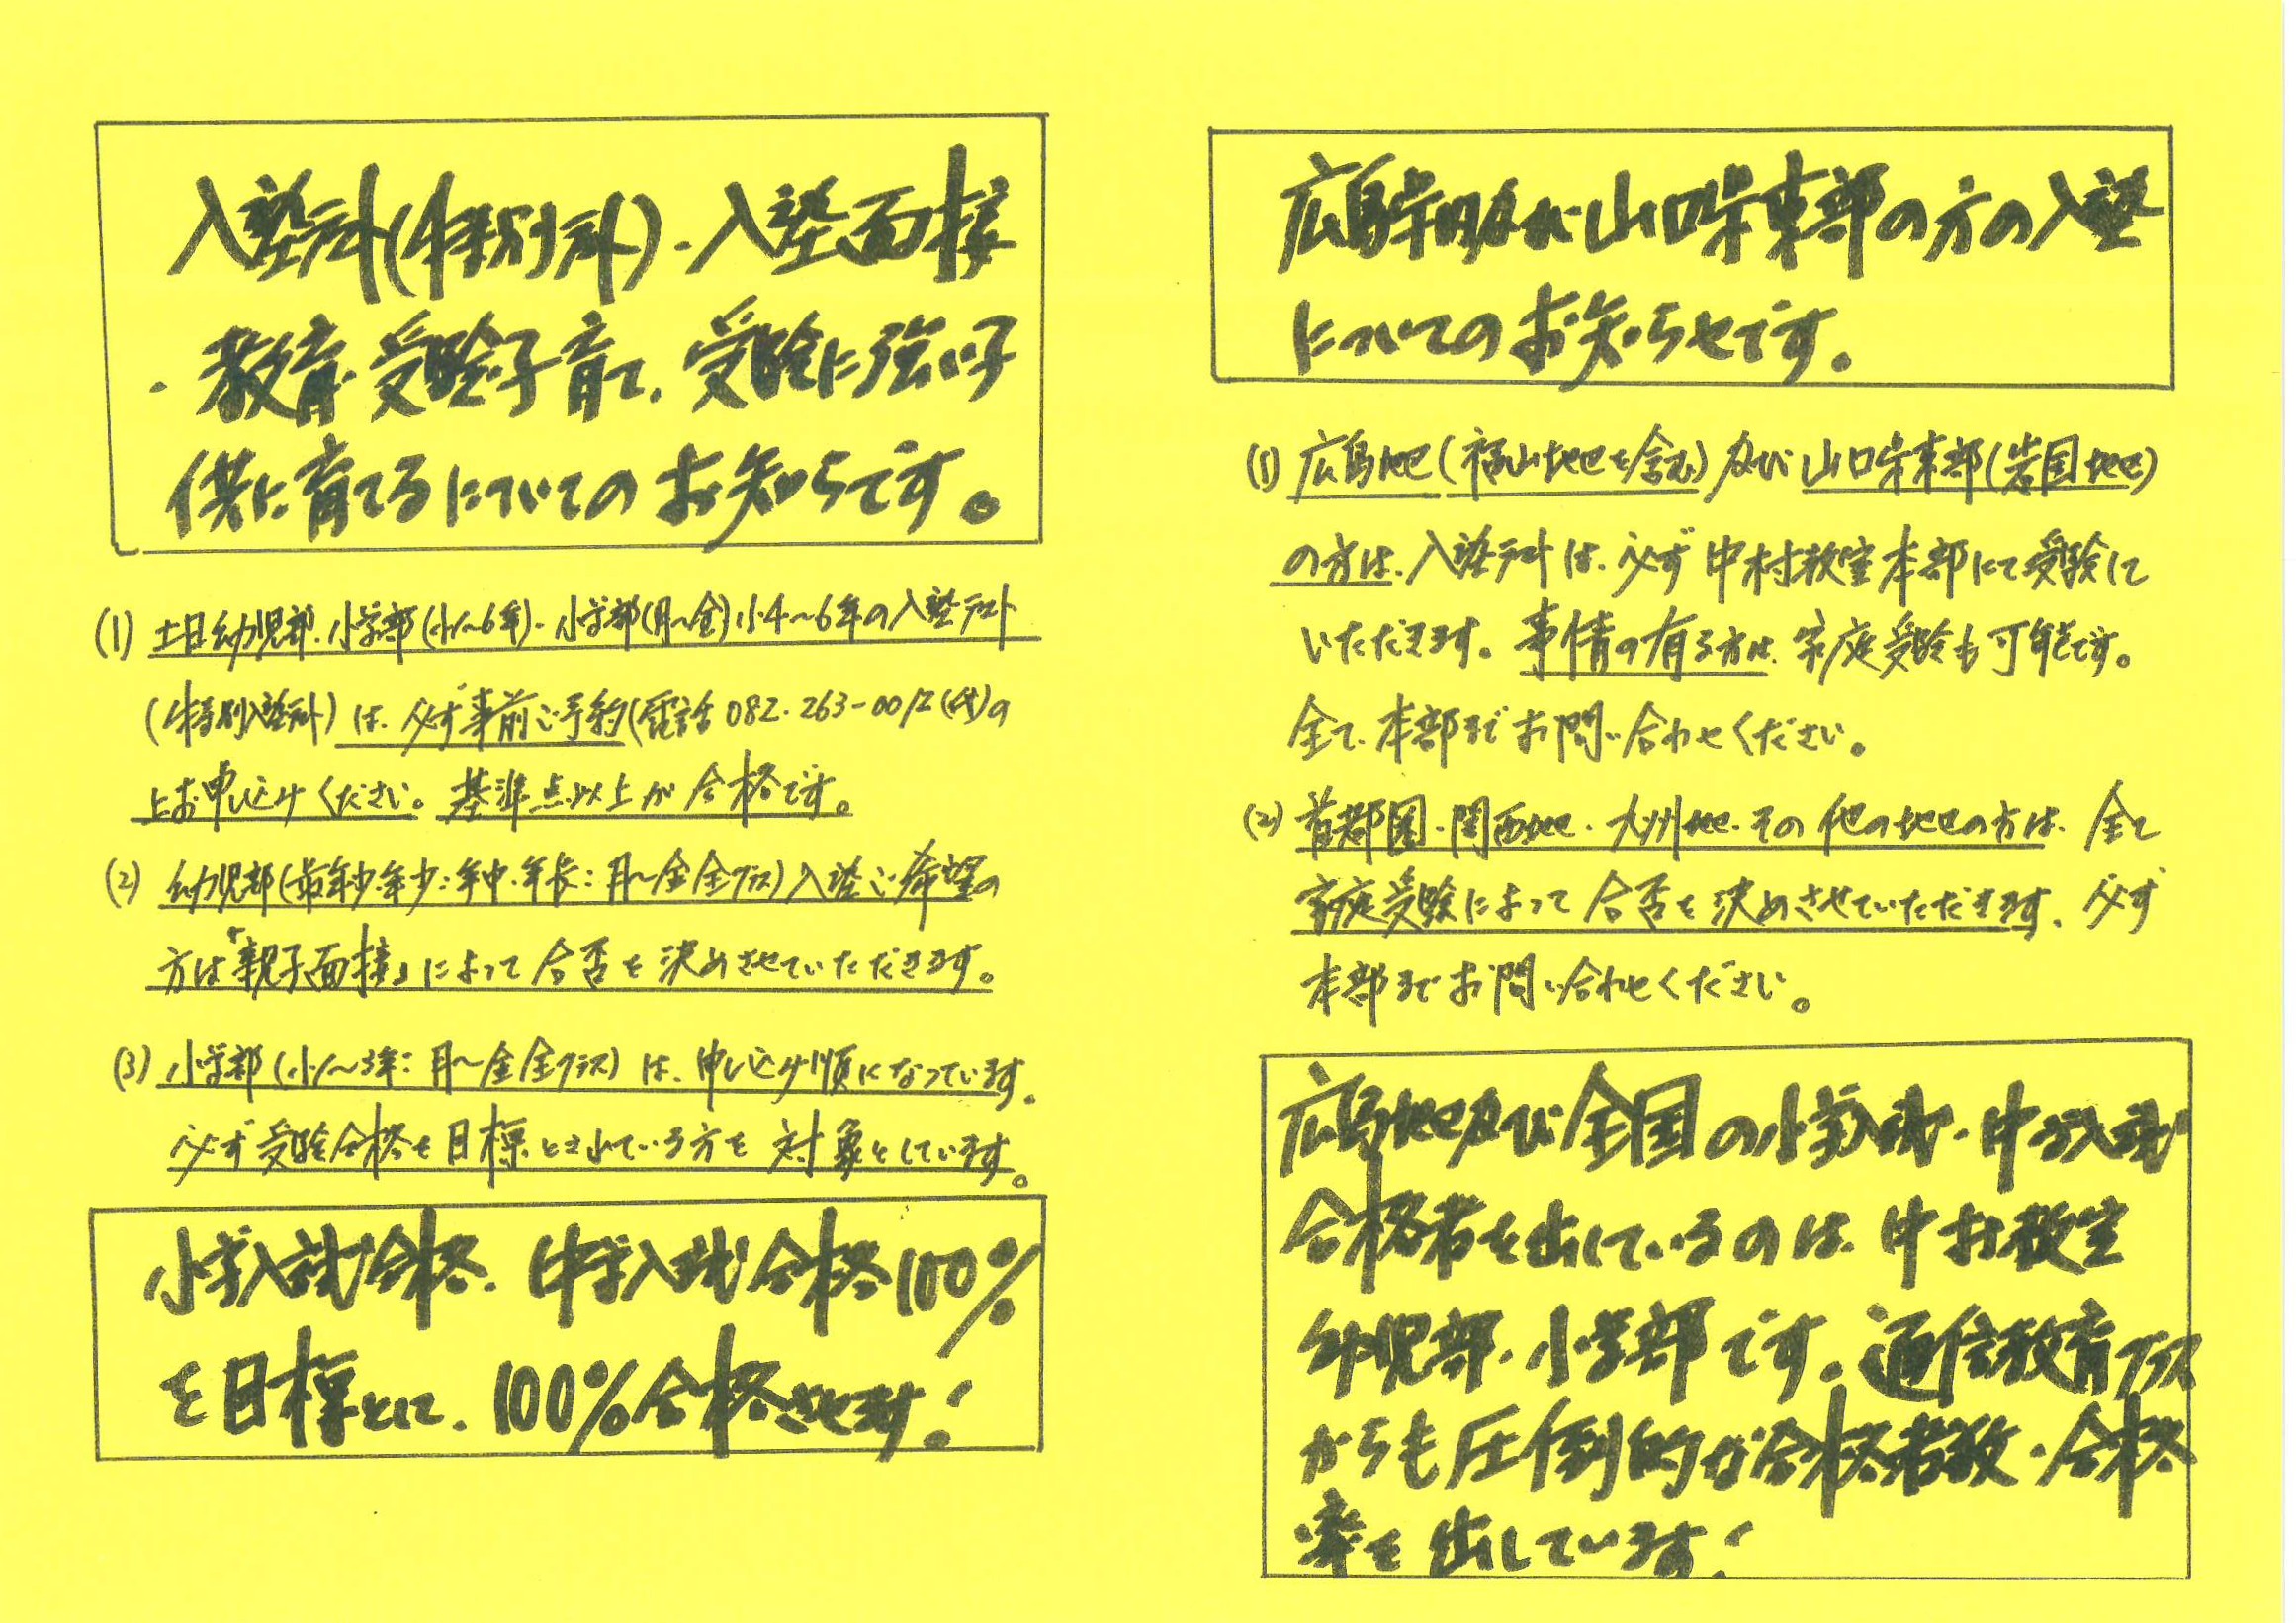 入塾テスト(特別テスト)・入塾面接
・教育・受験子育て、受験に強い子
供に育てるについてのお知らせです。
(1) 土日幼児部・小学部(小1〜6年)・小学部(月〜金)小4〜6年の入塾テスト
(特別入塾テスト)は、必ず事前ご予約(電話082-263-0012(代)の
上お申し込みください。基準点以上が合格です。
(2) 幼児部(最年少・年少:年中・年長:月〜金全クラス)入塾ご希望の
方は「親子面接」によって合否を決めさせていただきます。
(3) 小学部(小1〜3年:月〜金全クラス)は、申し込み順になっています。
必ず受験合格を目標とされている方を対象としています。
小学入試合格、中学入試合格100%
を目標として、100%合格させます!
広島県内及び山口県東部の方の入塾
についてのお知らせです。
(1) 広島地区(福山地区を含む)及び山口県東部(岩国地区)
の方は、入塾テストは、必ず中村教室本部にて受験して
いただきます。事情の有る方は、家庭受験も可能です。
全て、本部までお問い合わせください。
(2) 首都圏・関西地区・九州地区・その他の地区の方は、全て
家庭受験によって合否を決めさせていただきます。必ず
本部までお問い合わせください。
広島地区及び全国の小学入試・中学入試
合格者を出しているのは、中村教室
幼児部・小学部です。通信教育クラス
からも圧倒的な合格者数・合格
率を出しています!